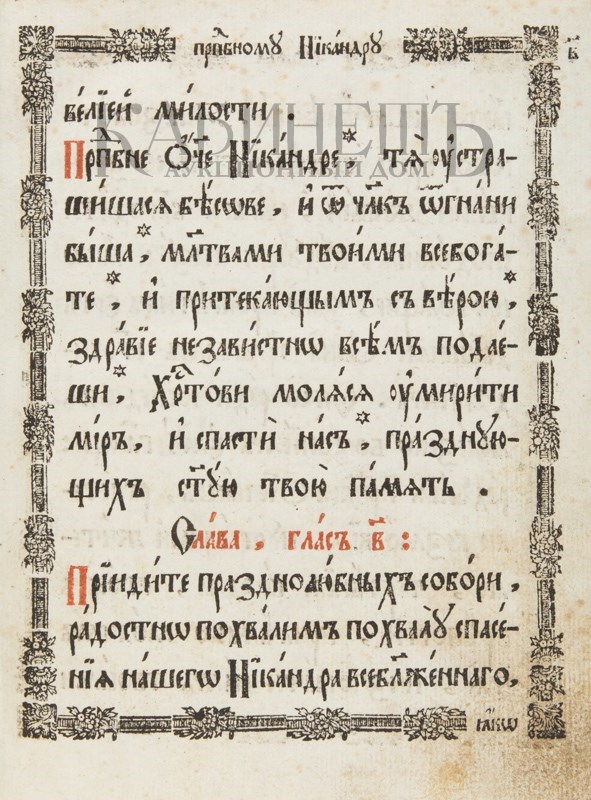 прпⷣбному Нїка́ндру
в҃
ве́лїей ми́лости .
Прпⷣбне Ѻ҆́ч҃е Нїка́ндре * , тѧ̀ ᲂу҆страши́-
ши́шасѧ бѣ́сове , и҆ ѿ чл҃къ ѿгна́ни
бы́ша * , мл҃твами твои́ми всебога́-
те * , и҆ притека́ющымъ съ вѣ́рою * ,
здра́вїе незави́стнѡ всѣ́мъ подае́-
ши * , Хрⷭ҇то́ви молѧ́сѧ ᲂу҆мири́ти
мі́ръ , и҆ спастѝ на́съ * , пра́зднꙋю-
щихъ ст҃ꙋ́ю твою̀ па́мѧть .
Сла́ва , гла́съ в҃ :
Прїиди́те празднолю́бныхъ собо́ри ,
ра́достнѡ похва́лимъ похвалꙋ̀ спасе́-
нїѧ на́шегѡ Нїка́ндра всебл҃же́ннаго ,
ꙗ҆́кѡ
КАБИНЕТЪ
АУКЦИОННЫЙ ДОМ